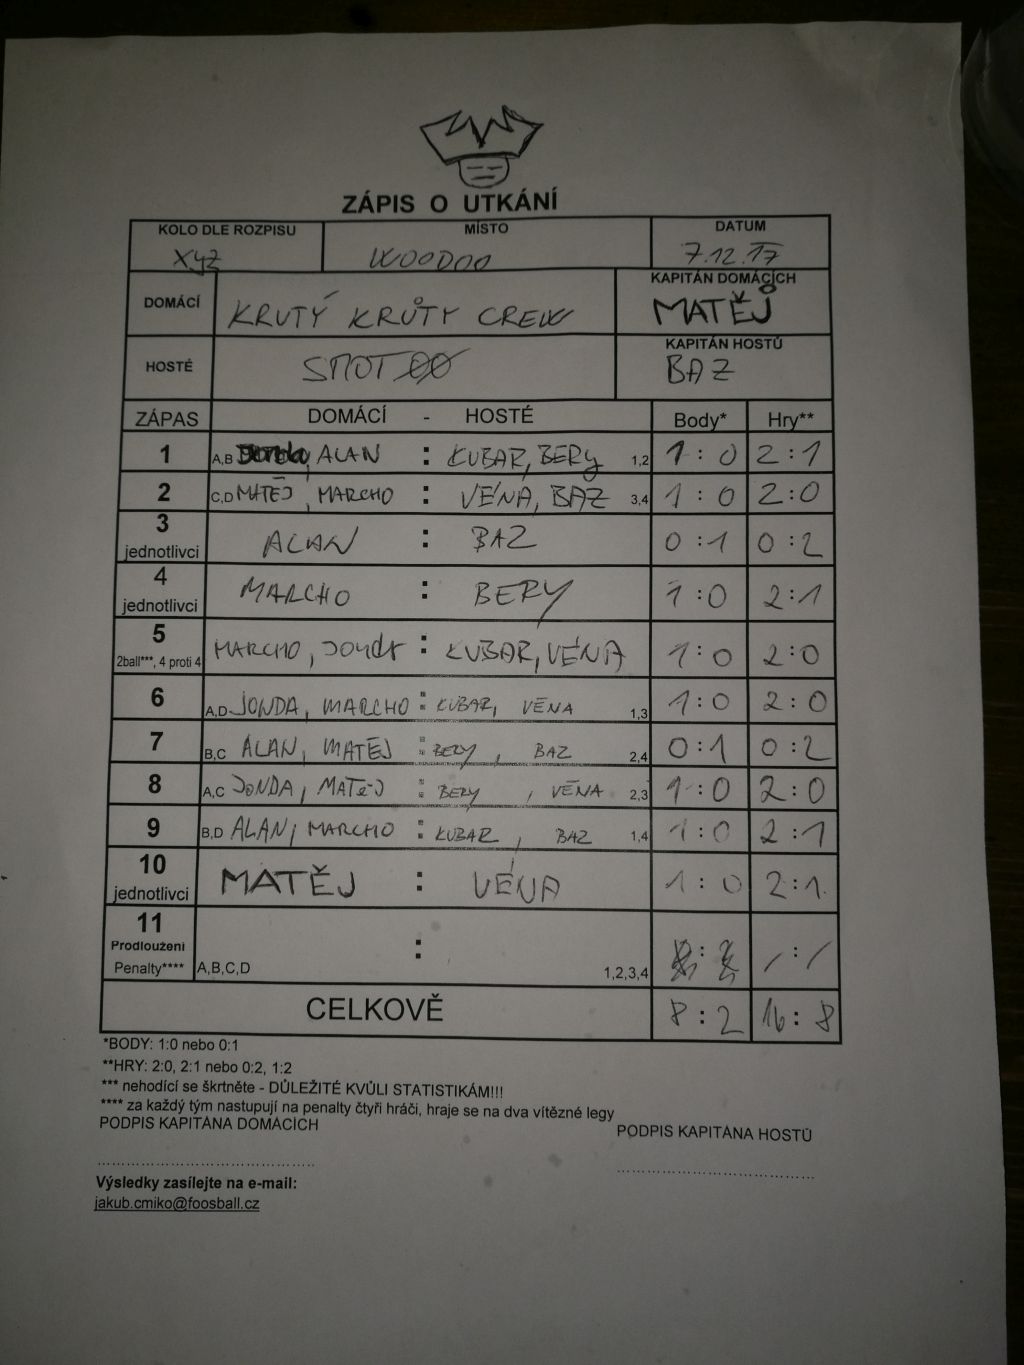 ZÁPIS O UTKÁNÍ
KOLO DLE ROZPISU MÍSTO DATUM
XYZ WOODOO 7.12.17
DOMÁCÍ KRUTÝ KRŮTY CREW KAPITÁN DOMÁCÍCH MATĚJ
HOSTÉ KAPITÁN HOSTŮ BAZ
ZÁPAS DOMÁCÍ - HOSTÉ Body* Hry**
1 A,B Jonda, ALAN : KUBAR, BERY 1,2 1:0 2:1
2 C,D MATĚJ, MARCHO : VÉNA, BAZ 3,4 1:0 2:0
3 jednotlivci ALAN : BAZ 0:1 0:2
4 jednotlivci MARCHO : BERY 1:0 2:1
5 2ball***, 4 proti 4 MARCHO, JONDA : KUBAR, VÉNA 1:0 2:0
6 A,D JONDA, MARCHO : KUBAR, VÉNA 1,3 1:0 2:0
7 B,C ALAN, MATĚJ : BERY, BAZ 2,4 0:1 0:2
8 A,C JONDA, MATěJ : BERY, VÉNA 2,3 1:0 2:0
9 B,D ALAN, MARCHO : KUBAR, BAZ 1,4 1:0 2:1
10 jednotlivci MATĚJ : VÉNA 1:0 2:1
11 Prodloužení Penalty**** A,B,C,D : 1,2,3,4 : / : /
CELKOVĚ 8:2 16:8
*BODY: 1:0 nebo 0:1
**HRY: 2:0, 2:1 nebo 0:2, 1:2
*** nehodící se škrtněte - DŮLEŽITÉ KVŮLI STATISTIKÁM!!!
**** za každý tým nastupují na penalty čtyři hráči, hraje se na dva vítězné legy
PODPIS KAPITÁNA DOMÁCÍCH PODPIS KAPITÁNA HOSTŮ
Výsledky zasílejte na e-mail:
jakub.cmiko@foosball.cz